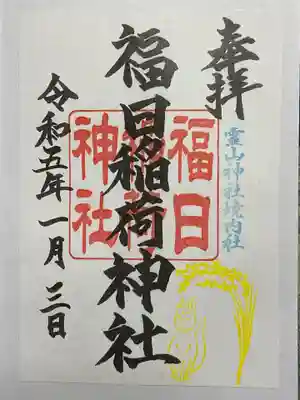 奉拝
靈山神社境内社
福日稲荷神社
福日
稲荷
神社
令和五年一月三日